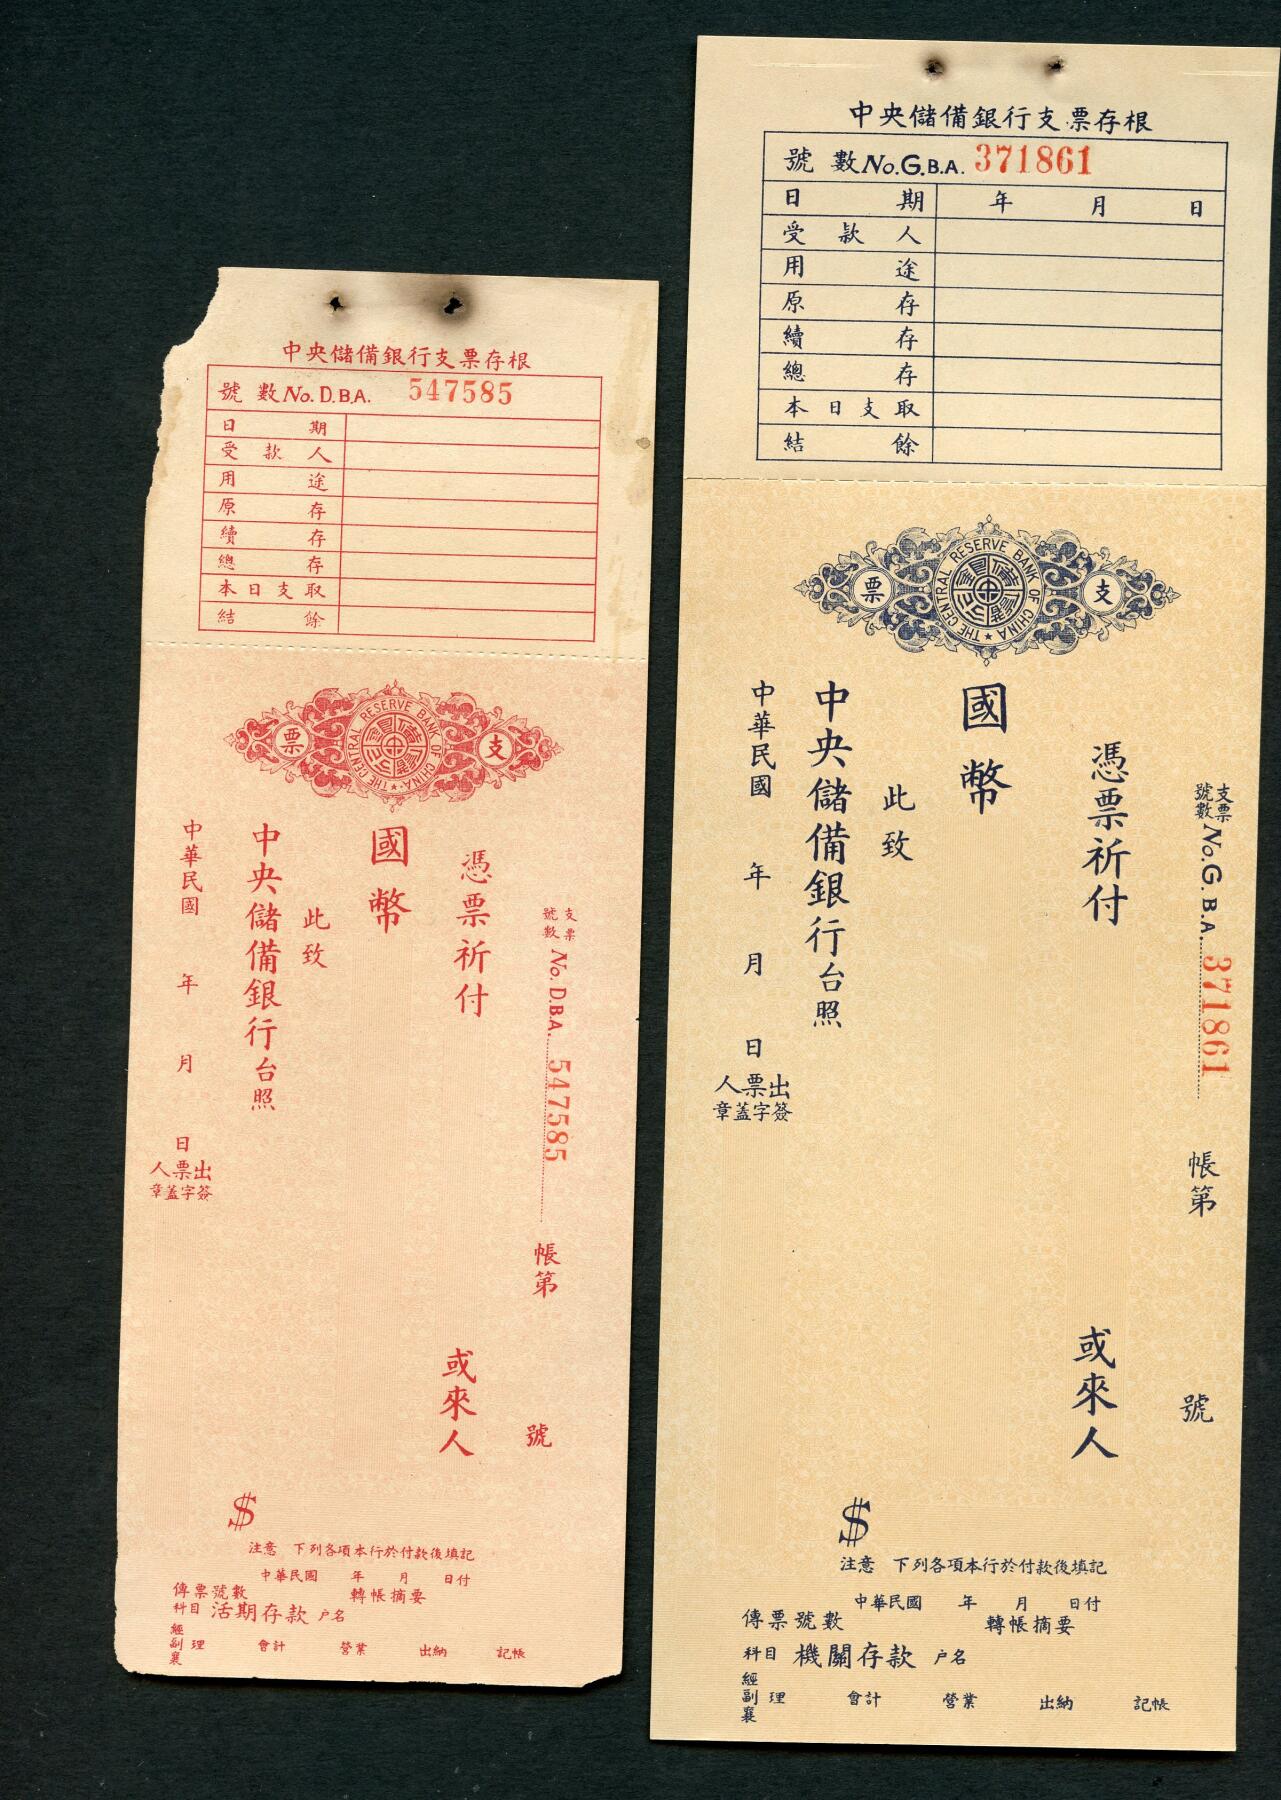 中央儲備銀行支票存根
號數 No. D.B.A. 547585
日期
受款人
用途
原存
續存
總存
本日支取
結餘
THE CENTRAL RESERVE BANK OF CHINA
支票
支票號數 No. D.B.A. 547585
帳第 號
憑票祈付 或來人
國幣
此致
中央儲備銀行台照
中華民國 年 月 日
出票人
簽字蓋章
$
注意 下列各項本行於付款後填記
中華民國 年 月 日付
傳票號數 轉帳摘要
科目 活期存款 户名
經副襄理 會計 營業 出納 記帳
中央儲備銀行支票存根
號數 No. G.B.A. 371861
日期 年 月 日
受款人
用途
原存
續存
總存
本日支取
結餘
THE CENTRAL RESERVE BANK OF CHINA
支票
支票號數 No. G.B.A. 371861
帳第 號
憑票祈付 或來人
國幣
此致
中央儲備銀行台照
中華民國 年 月 日
出票人
簽字蓋章
$
注意 下列各項本行於付款後填記
中華民國 年 月 日付
傳票號數 轉帳摘要
科目 機關存款 户名
經副襄理 會計 營業 出納 記帳